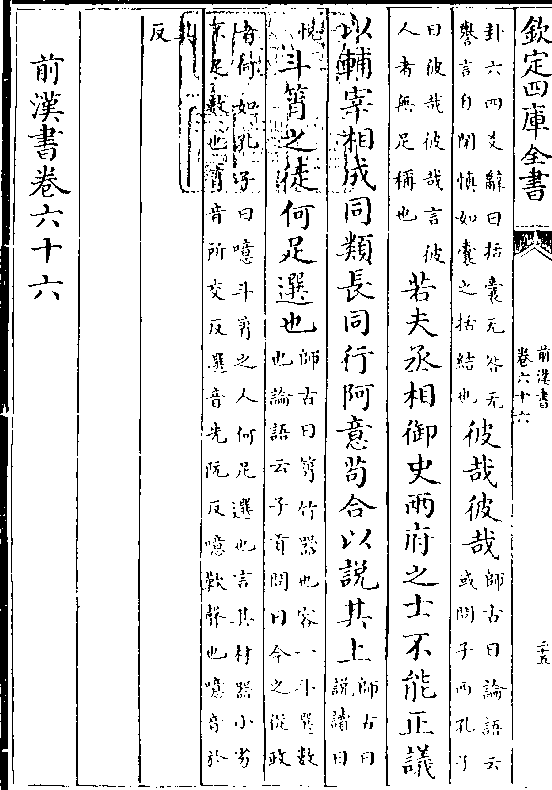 欽定四庫全書
前漢書
卷六十六
卦六四爻辭曰括囊无咎无
譽言自閉慎如囊之括結也
彼哉彼哉
師古曰論語云
或問子西孔子
曰彼哉彼哉言彼
人者無足稱也
若夫丞相御史兩府之士不能正議
以輔宰相成同類長同行阿意苟合以說其上
師古曰
說讀曰
悅
斗筲之徒何足選也
師古曰筲竹器也容一斗選數
也論語云子貢問曰今之從政
者何如孔子曰噫斗筲之人何足選也言其材器小劣
不足數也筲音所交反選音先阮反噫歎聲也噫音於
其
反
前漢書卷六十六